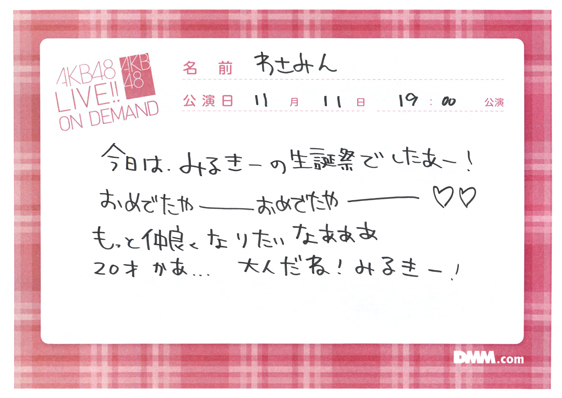 AKB48
LIVE!!
ON DEMAND
AKB
48
名前 わさみん
公演日 11月11日 19:00 公演
今日は、みるきーの生誕祭でしたあー!
おめでたや――おめでたや――♡♡
もっと仲良くなりたいなあああ
20才かあ... 大人だね!みるきー!
DMM.com